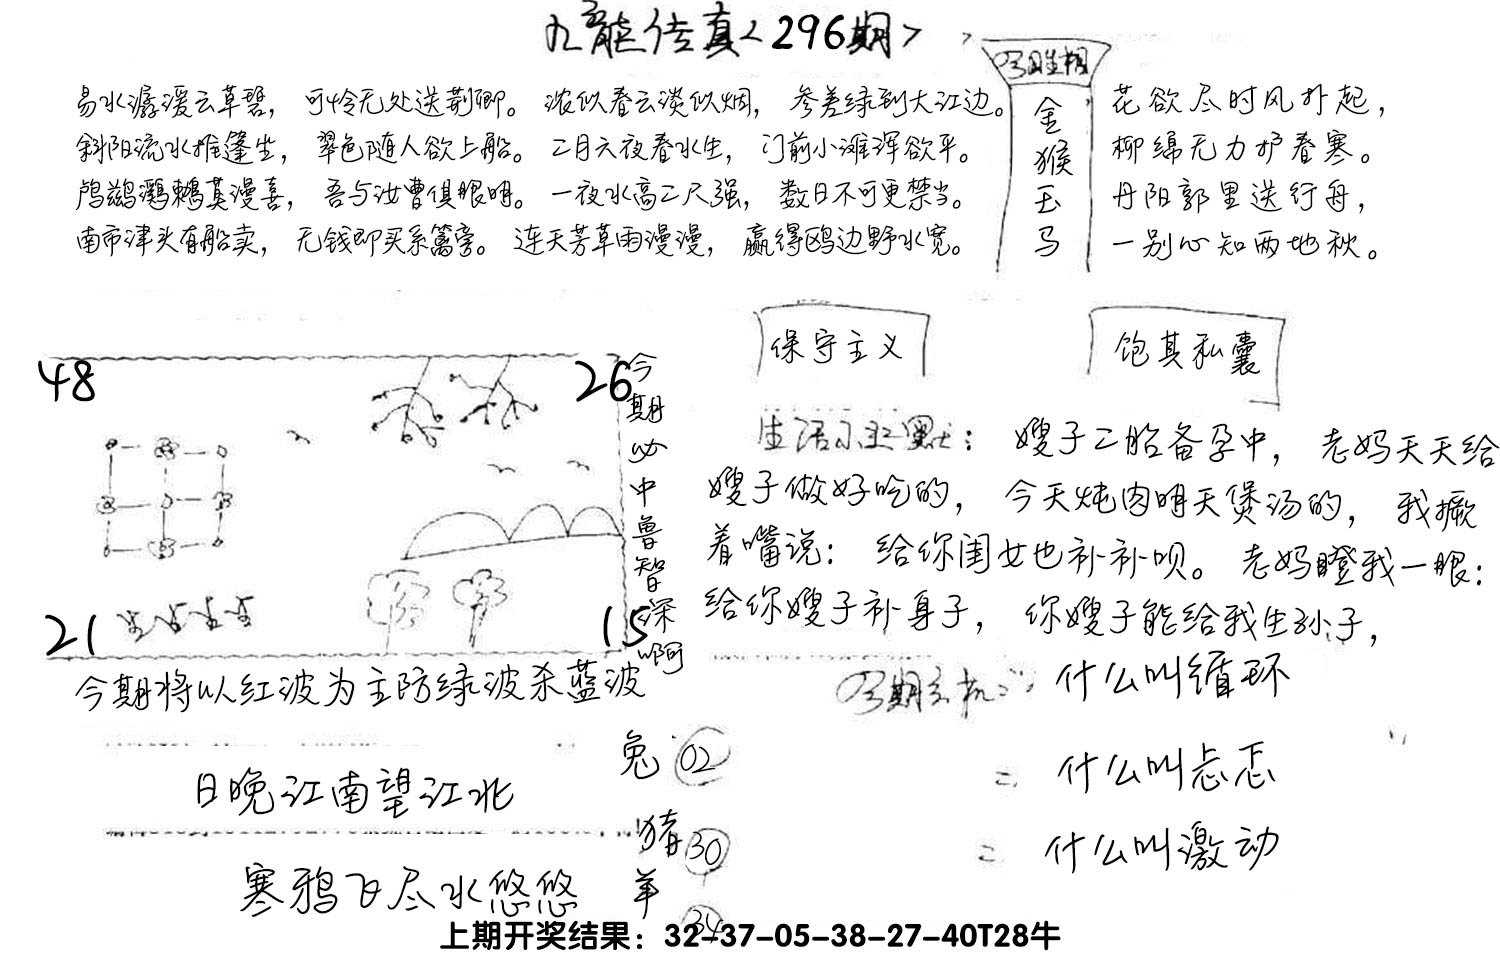 九龙传真<296期>
易水潺湲云草碧，可怜无处送荆卿。浓似春云淡似烟，参差绿到大江边。
斜阳流水推篷坐，翠色随人欲上船。二月六夜春水生，门前小滩浑欲平。
鸬鹚鸂鶒莫漫喜，吾与汝曹俱眼明。一夜水高二尺强，数日不可更禁当。
南市津头有船卖，无钱即买系篱旁。连天芳草雨漫漫，赢得鸥边野水宽。
金
猴
玉
马
花欲尽时风扑起，
柳绵无力护春寒。
丹阳郭里送行舟，
一别心知两地秋。
保守主义
饱其私囊
48
26
21
15
今期必中鲁智深啊
生活小幽默：嫂子二胎备孕中，老妈天天给
嫂子做好吃的，今天炖肉明天煲汤的，我撅
着嘴说：给你闺女也补补呗。老妈瞪我一眼：
给你嫂子补身子，你嫂子能给我生孙子，
今期将以红波为主防绿波杀蓝波
今期玄机：什么叫循环
什么叫忐忑
什么叫激动
日晚江南望江北
寒鸦飞尽水悠悠
兔 02
猪 30
羊 34
上期开奖结果：32-37-05-38-27-40T28牛